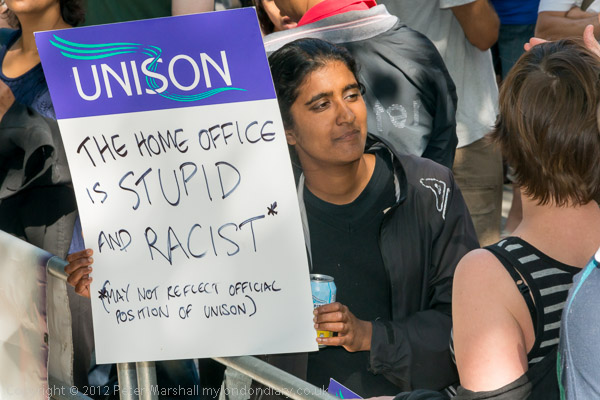 UNISON
THE HOME OFFICE
IS STUPID
AND RACIST*
*(MAY NOT REFLECT OFFICIAL
POSITION OF UNISON)
Copyright © 2012 Peter Marshall mylondondiary.co.uk